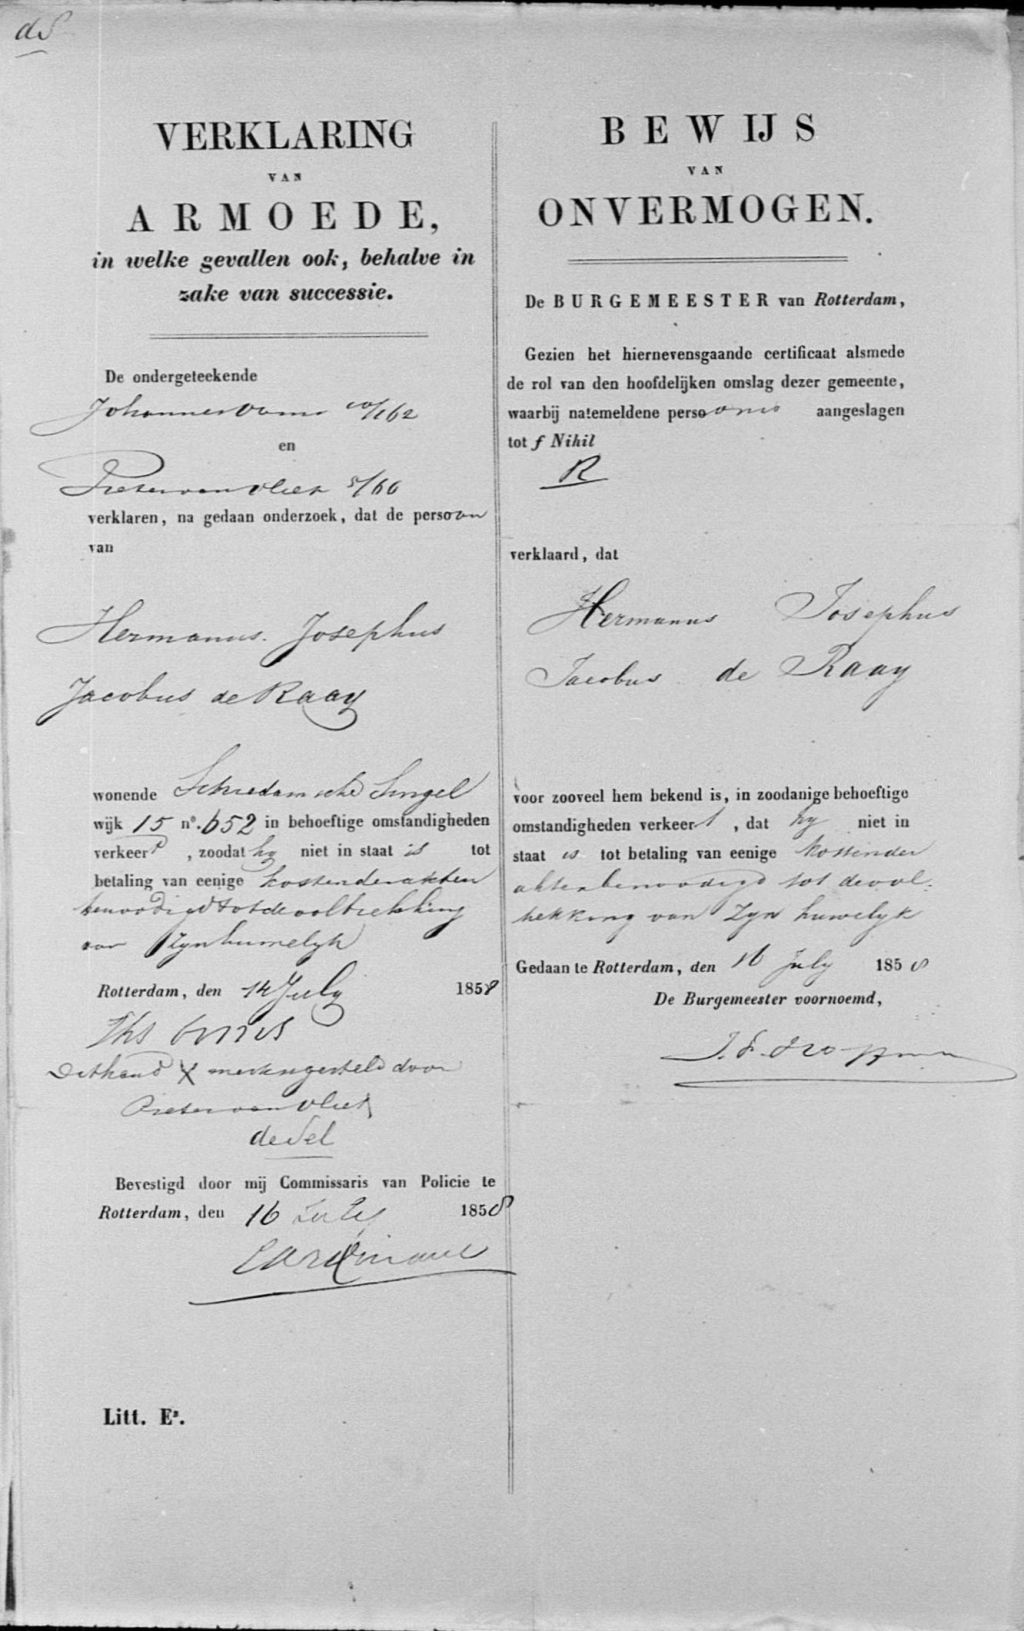 dS
VERKLARING
VAN
ARMOEDE,
in welke gevallen ook, behalve in
zake van successie.
De ondergeteekende
Johannes
en
Pieter van Vliet 5/60
verklaren, na gedaan onderzoek, dat de persoon
van
Hermanus Josephus
Jacobus de Raay
wonende Schiedamsche Singel
wijk 15 n°. 652 in behoeftige omstandigheden
verkeert, zoodat hy niet in staat is tot
betaling van eenige kosten der akten
benoodigd tot de voltrekking
van zyn huwelyk
Rotterdam, den 14 July 1858
Dit hand X merk is gesteld door
Pieter van Vliet
Bevestigd door mij Commissaris van Policie te
Rotterdam, den 16 July 1858
Litt. Eª.
BEWIJS
VAN
ONVERMOGEN.
De BURGEMEESTER van Rotterdam,
Gezien het hiernevensgaande certificaat alsmede
de rol van den hoofdelijken omslag dezer gemeente,
waarbij natemeldene persoons aangeslagen
tot f Nihil
R
verklaard, dat
Hermanus Josephus
Jacobus de Raay
voor zooveel hem bekend is, in zoodanige behoeftige
omstandigheden verkeert, dat hy niet in
staat is tot betaling van eenige kosten der
akten benoodigd tot de vol-
trekking van Zyn huwelyk
Gedaan te Rotterdam, den 16 July 1858
De Burgemeester voornoemd,